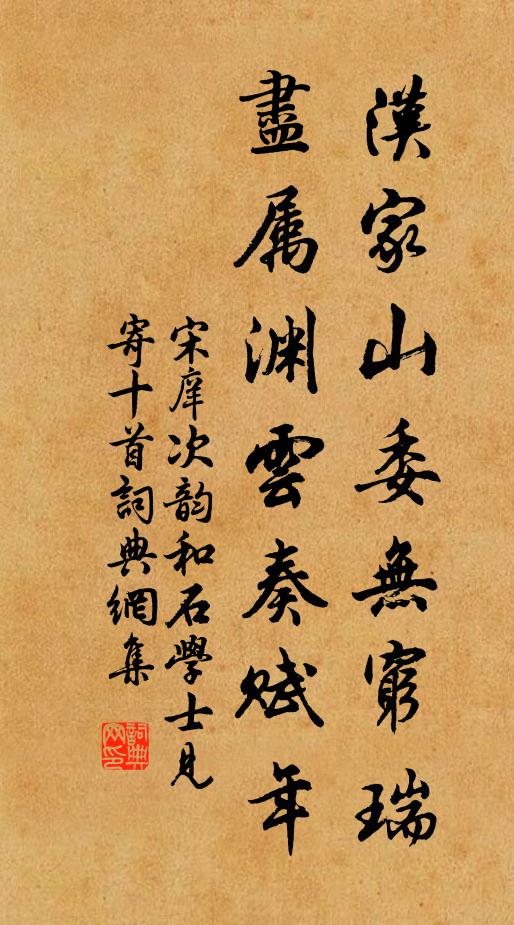 漢家山委無窮瑞
盡属渊雲奏賦年
宋庠次韵和石學士見
寄十首詞典網集
詞典网印